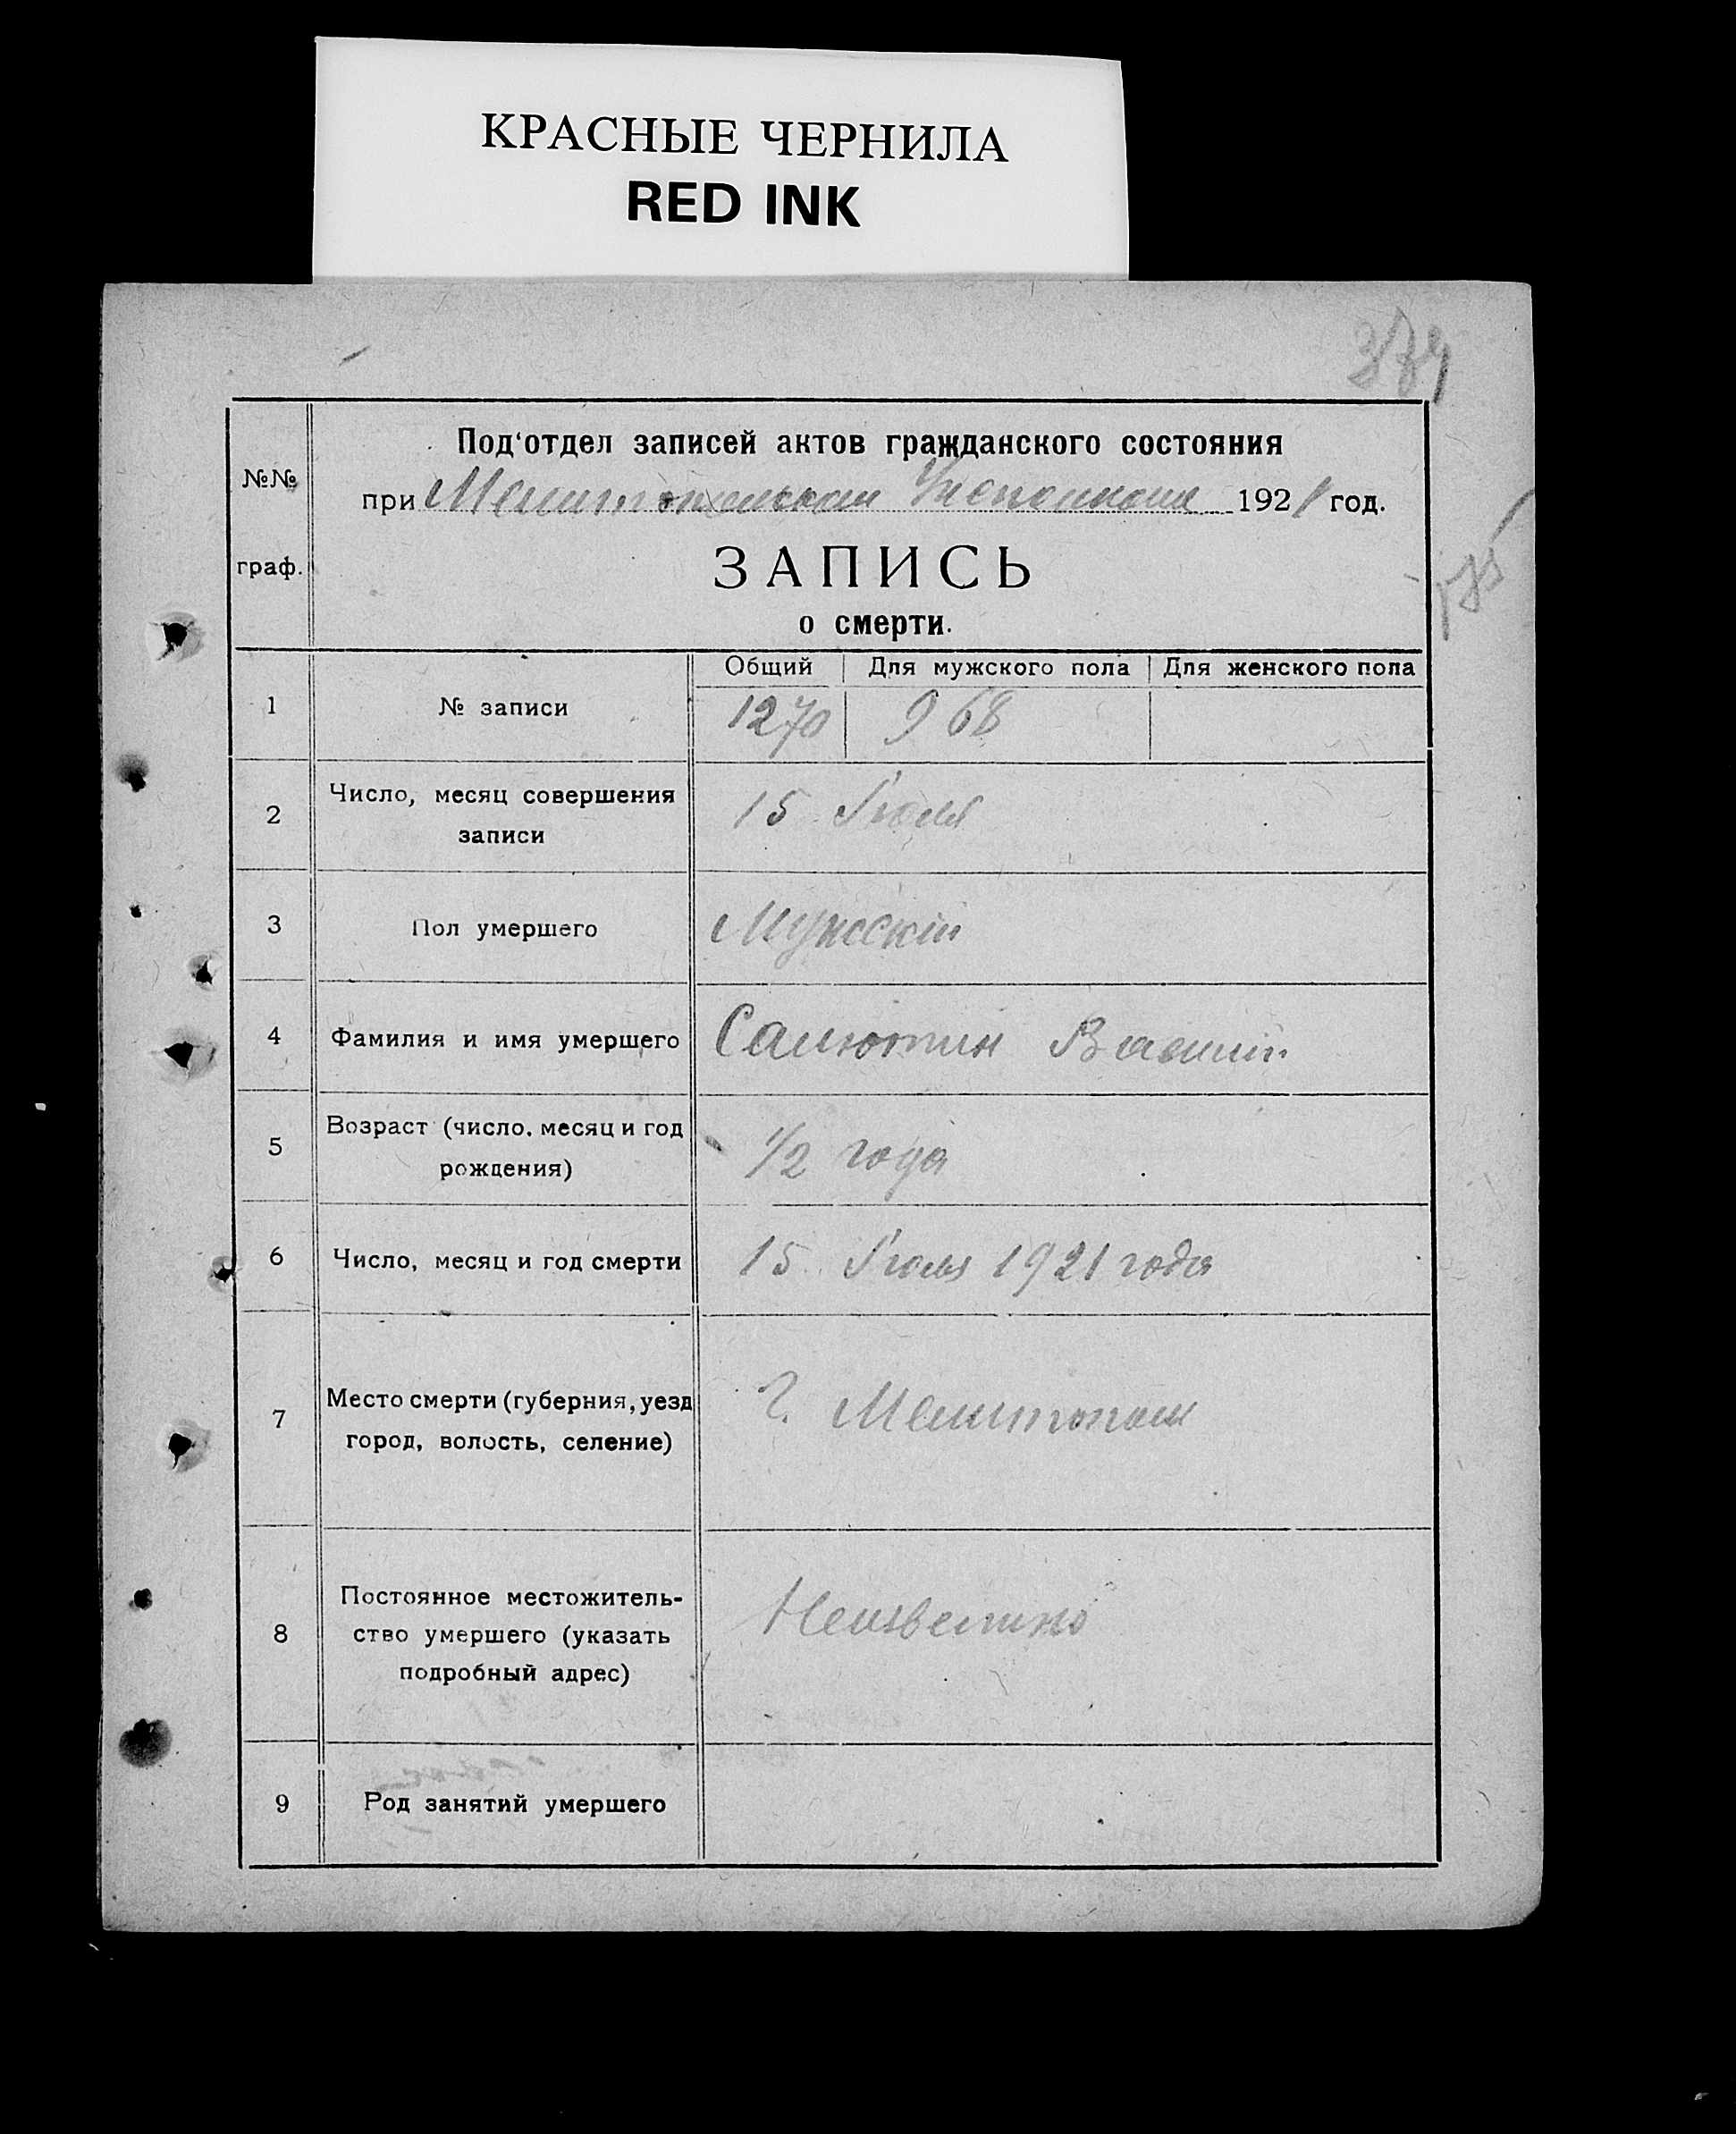 КРАСНЫЕ ЧЕРНИЛА
RED INK
379
Под‘отдел записей актов гражданского состояния
№№
при Мелитопольском 1921 год.
граф.
ЗАПИСЬ
о смерти.
Общий Для мужского пола Для женского пола
1 № записи 1270 968
2 Число, месяц совершения
записи
15 Июля
3 Пол умершего Мужскій
4 Фамилия и имя умершего Салютин Василій
5 Возраст (число, месяц и год
рождения)
1/2 года
6 Число, месяц и год смерти 15 Июля 1921 года
7 Место смерти (губерния, уезд
город, волость, селение)
Г. Мелитополь
8 Постоянное местожитель-
ство умершего (указать
подробный адрес)
Неизвестно
9 Род занятий умершего